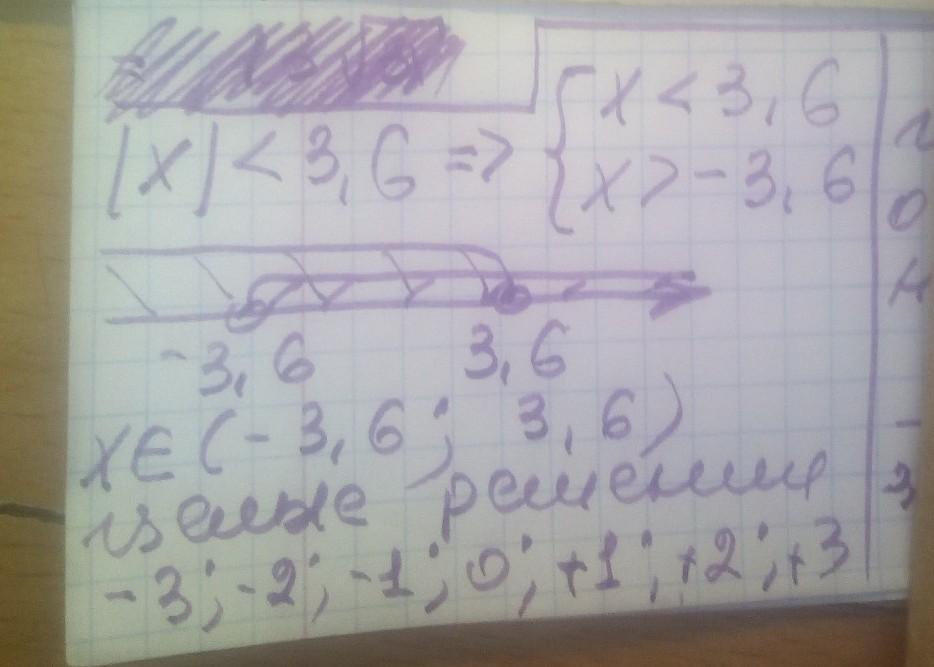 |x| < 3,6 => { x < 3,6
x > -3,6
-3,6 3,6
x∈(-3,6; 3,6)
целые решения
-3; -2; -1; 0; +1; +2; +3